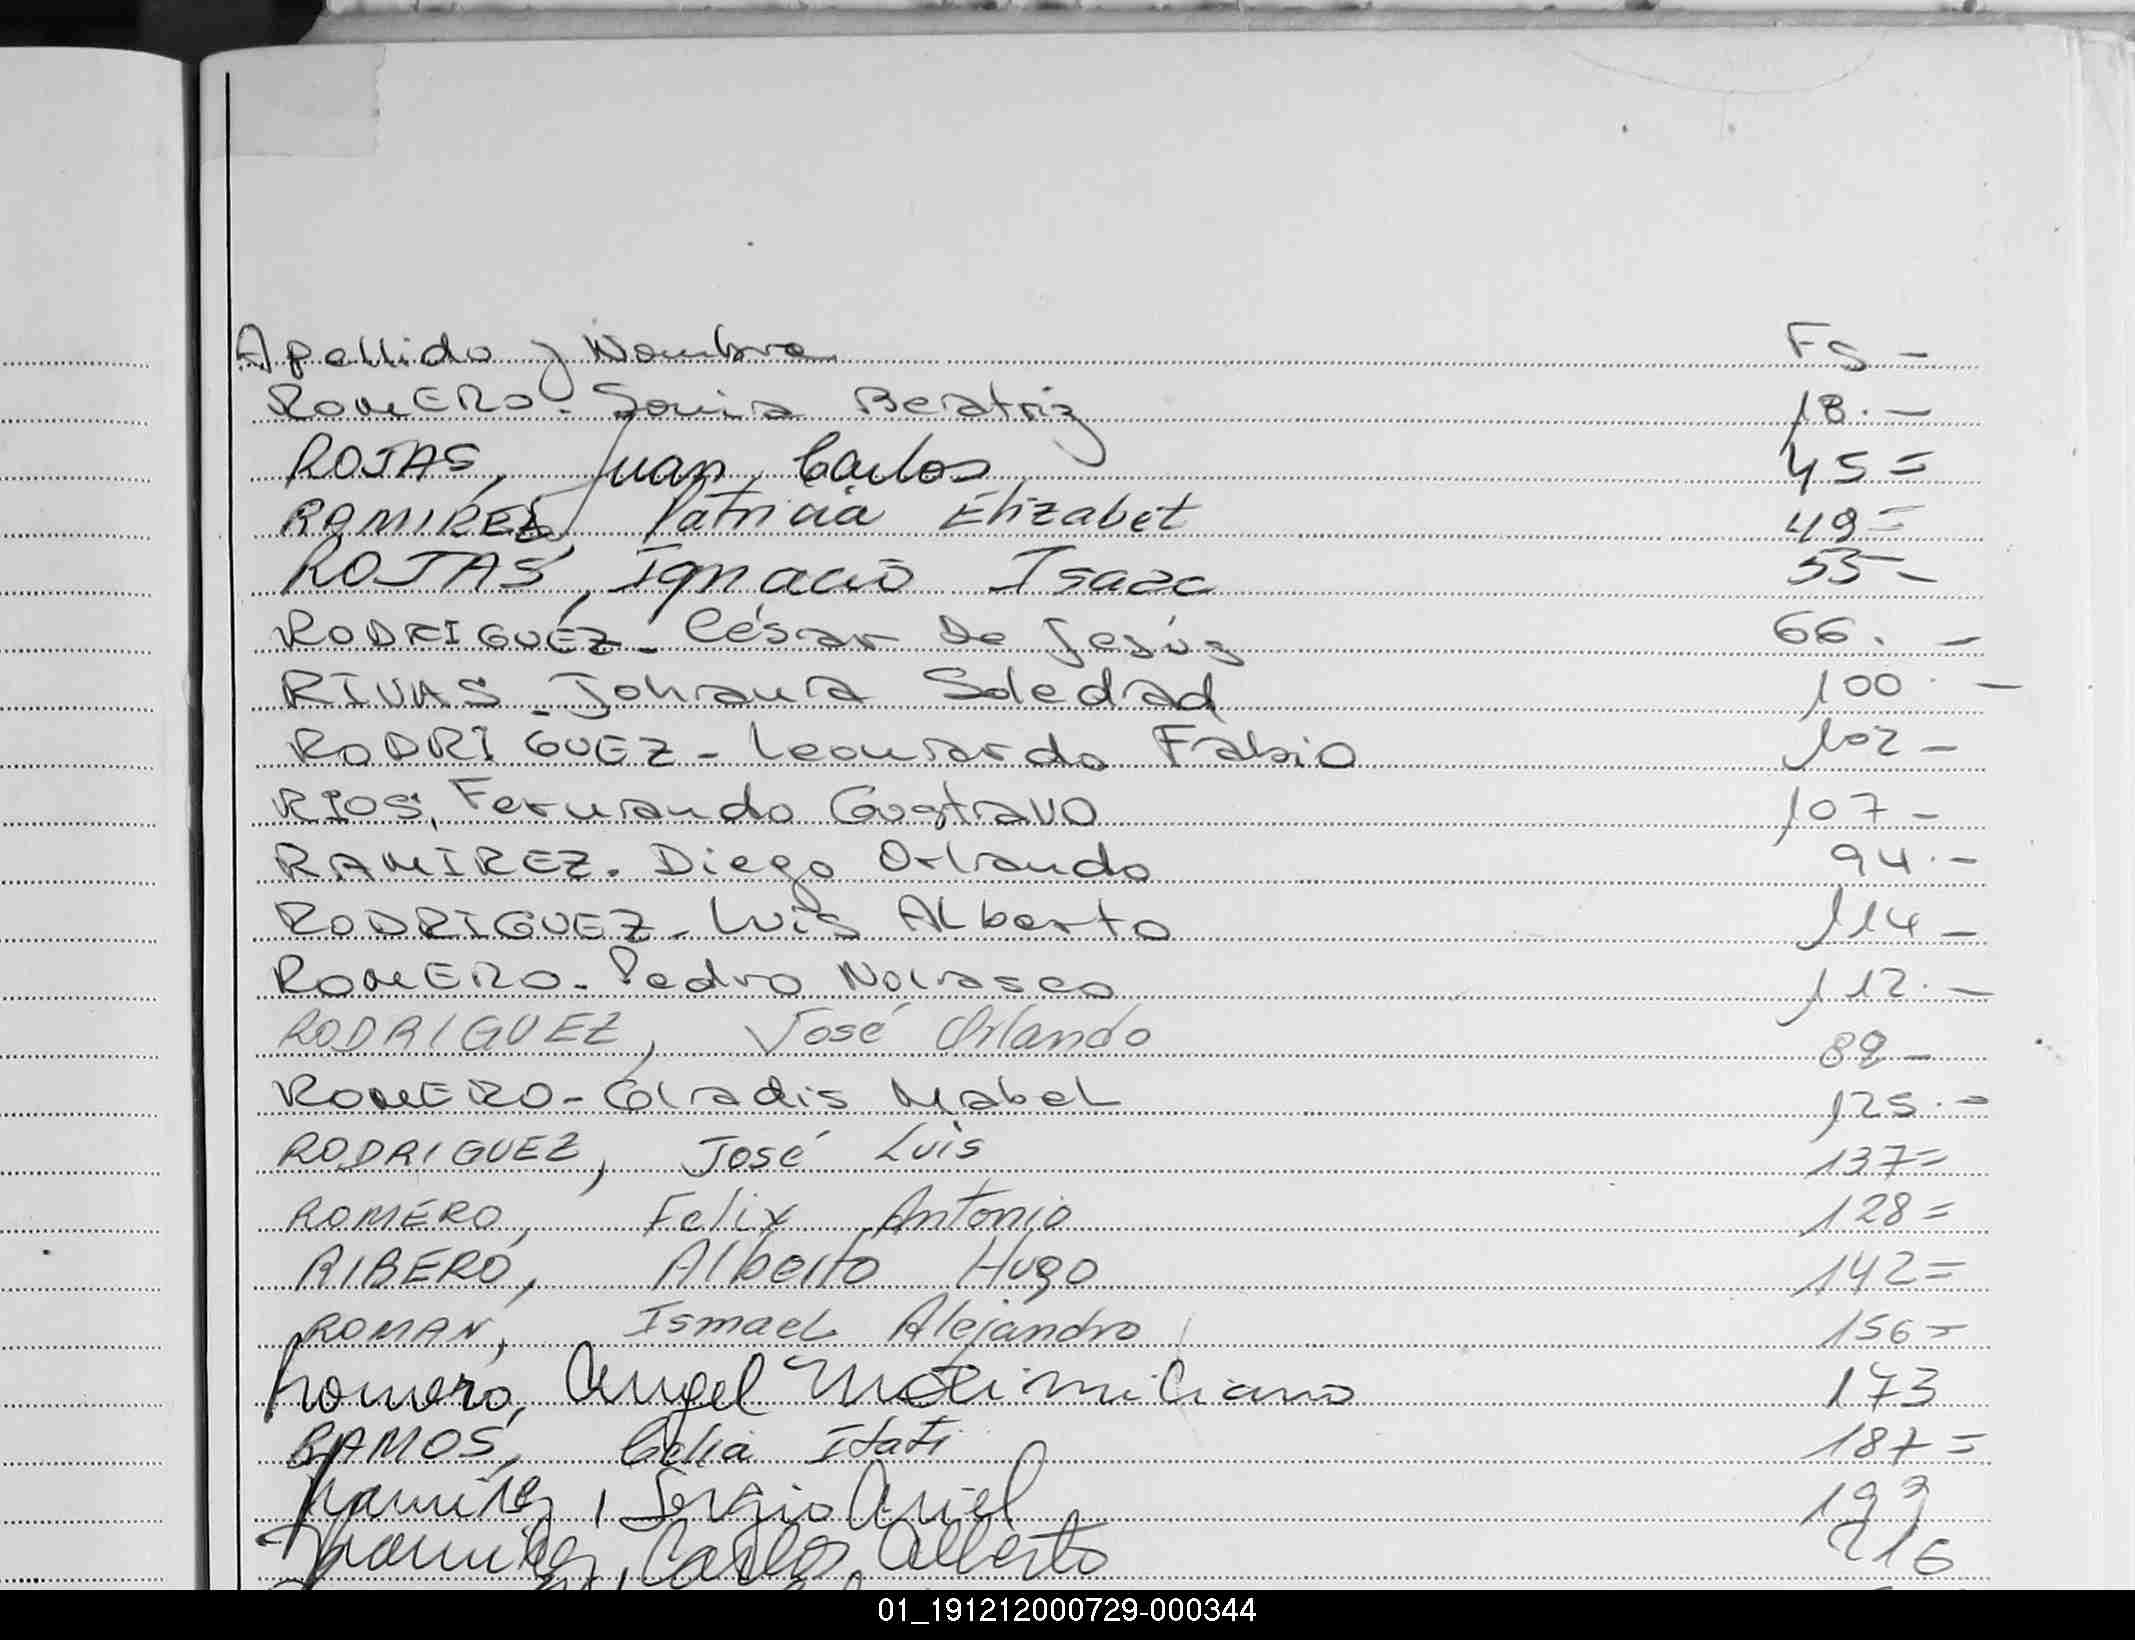 Apellido y Nombre Fs -
ROMERO - Sonia Beatriz 18. -
ROJAS, Juan Carlos 45 =
RAMIREZ, Patricia Elizabet 49 =
ROJAS, Ignacio Isaac 55 -
RODRIGUEZ - César De Jesús 66. -
RIVAS - Johana Soledad 100. -
RODRIGUEZ - Leonardo Fabio 102 -
RIOS, Fernando Gustavo 107 -
RAMIREZ. Diego Orlando 94. -
RODRIGUEZ - Luis ALberto 114 -
ROMERO - Pedro Nolasco 112. -
RODRIGUEZ, José Orlando 89 -
ROMERO - Gladis Mabel 125. =
RODRIGUEZ, José Luis 137 =
ROMERO, Felix Antonio 128 =
RIBERO, Alberto Hugo 142 =
ROMAN, Ismael Alejandro 156 =
Romero, Angel Maximiliano 173
RAMOS, Celia Itati 187 =
Ramirez, Sergio Ariel 193
Ramirez, Carlos Alberto 216
01_191212000729-000344